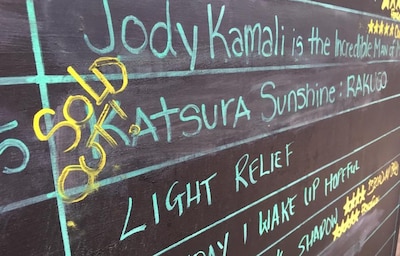 Jody Kamali is the Incredible Man of
SOLD OUT!
Katsura Sunshine: RAKUGO
LIGHT RELIEF
DAY I WAKE UP HOPEFUL
SHADOW